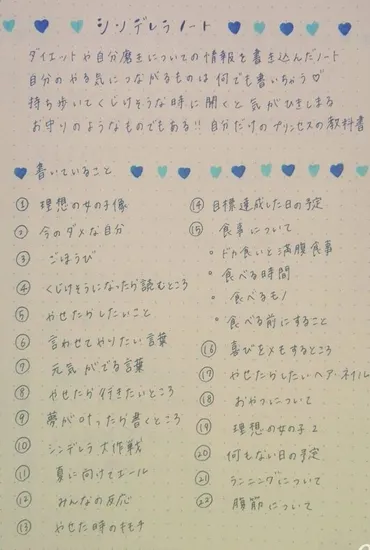 シンデレラノート
ダイエットや自分磨きについての情報を書き込んだノート
自分のやる気につながるものは何でも書いちゃう♡
持ち歩いてくじけそうな時に開くと気がひきしまる
お守りのようなものでもある!! 自分だけのプリンセスの教科書
書いていること
① 理想の女の子像
② 今のダメな自分
③ ごほうび
④ くじけそうになったら読むところ
⑤ やせたらしたいこと
⑥ 言わせてやりたい言葉
⑦ 元気がでる言葉
⑧ やせたら行きたいところ
⑨ 夢が叶ったら書くところ
⑩ シンデレラ大作戦
⑪ 夏に向けてエール
⑫ みんなの反応
⑬ やせた時のキモチ
⑭ 目標達成した日の予定
⑮ 食事について
・ドカ食いと満腹食事
・食べる時間
・食べるモノ
・食べる前にすること
⑯ 喜びをメモするところ
⑰ やせたらしたいヘア・ネイル
⑱ おやつについて
⑲ 理想の女の子2
⑳ 何もない日の予定
㉑ ランニングについて
㉒ 腹筋について